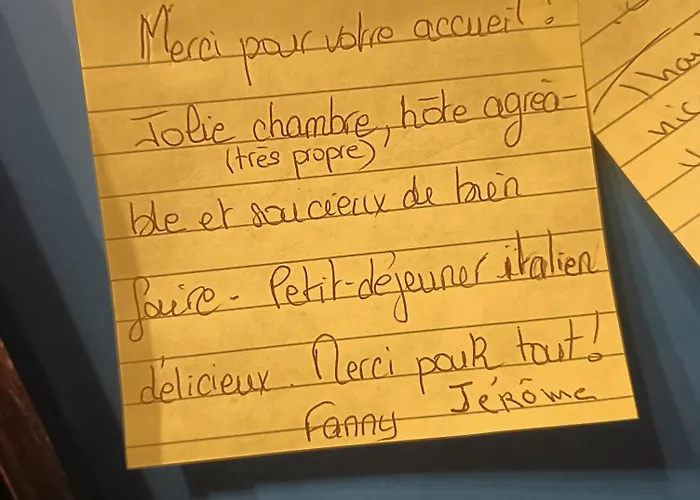 Merci pour votre accueil !
Jolie chambre, hôte agréa-
(très propre)
ble et soucieux de bien
faire. Petit-déjeuner italien
délicieux. Merci pour tout!
Fanny Jérôme